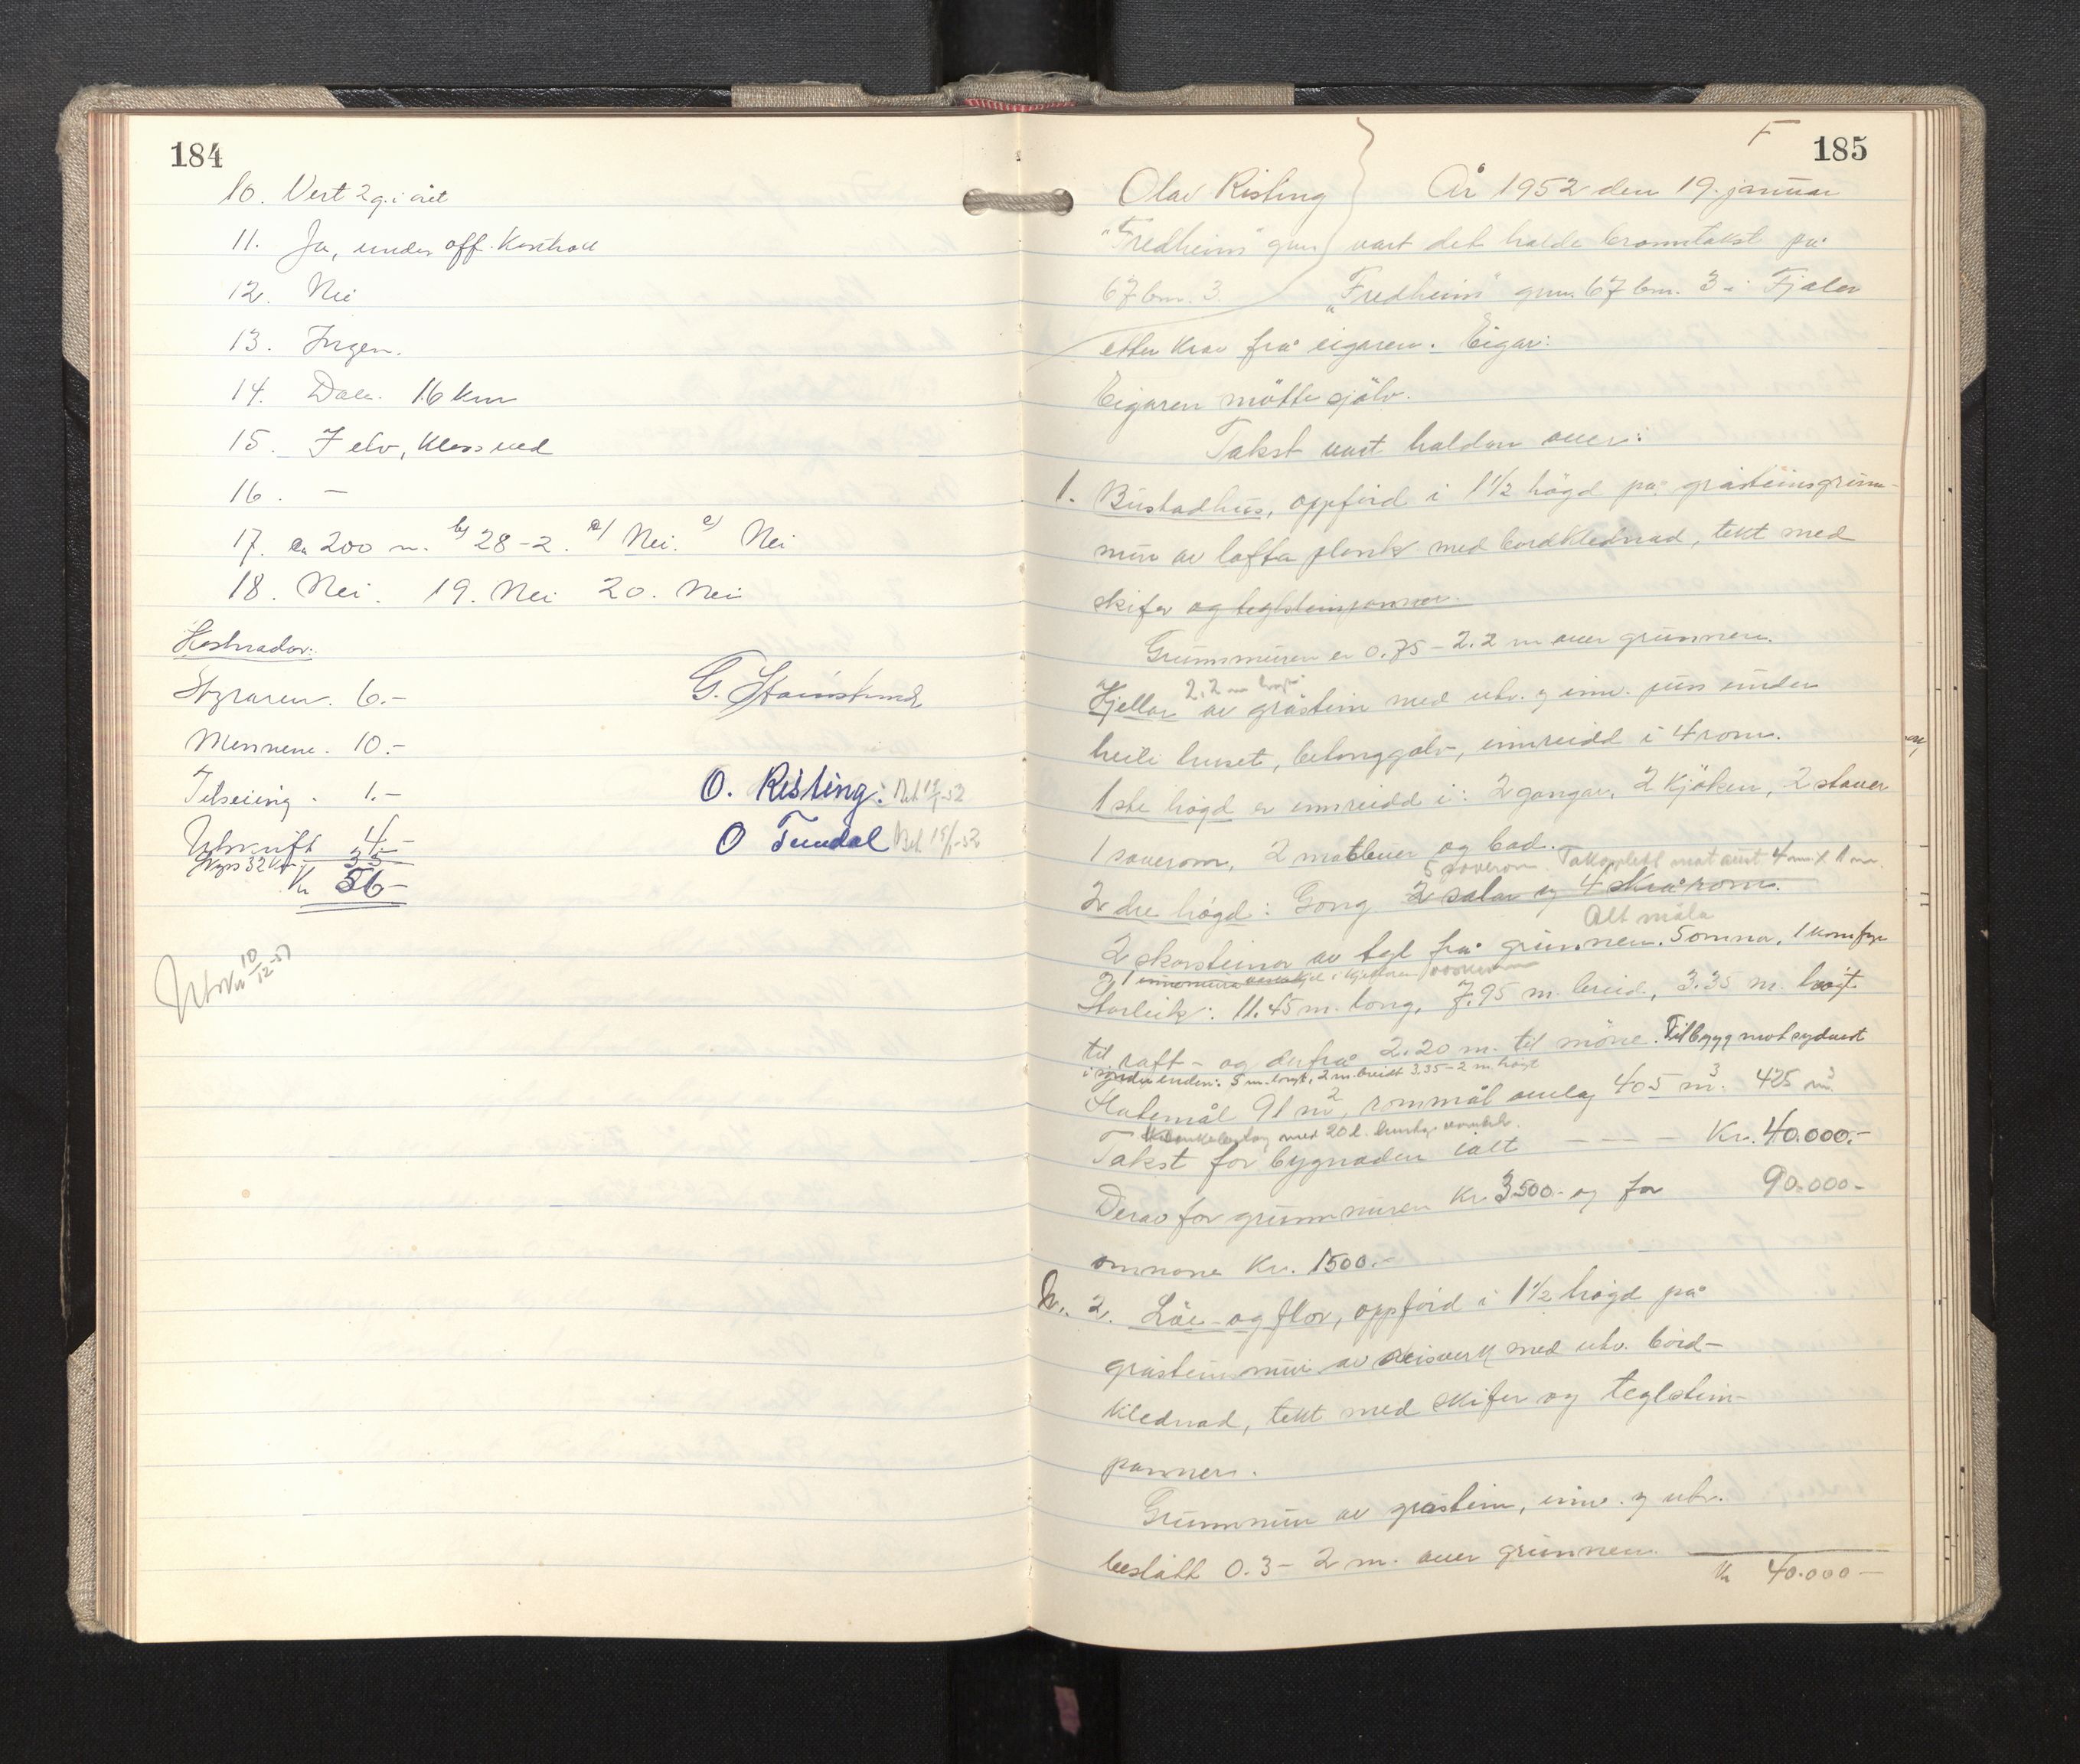 184
10. Vert 2 g. i året
11. Ja, under off. Kontroll
12. Nei
13. Ingen.
14. Dale. 16 km
15. I elv,
16. –
17. ca 200 m. b/ 28-2. Nei. e/ Nei
18. Nei. 19. Nei 20. Nei
Kostnador:
Styraren. 6.-
G. Staurstrand
Mennene. 10.-
Tilseiing. 1.-
O. Risting:
Utskrift 4.-
O Tundal
Skyss 32 km 35
Kr 56-
Utskr. 10/12-51
185
Olav Risting År 1952 den 19. januar
"Fredheim" gnr vart det halde branntakst på
67 bnr. 3. "Fredheim" gnr. 67 bnr. 3 i Fjaler
etter krav frå eigaren. Eigar:
Eigaren møtte sjølv.
Takst vart halden over:
1. Bustadhus, oppførd i 1 1/2 høgd på gråsteinsgrunn-
mur av lafta plank med bordklednad, tekt med
skifer og teglsteinspanner.
Grunnmuren er 0.75 - 2.2 m over grunnen.
2.2 m høg
Kjellar av gråstein med utv. og innv. puss under
heile huset, betonggolv, innreidd i 4 rom.
1ste høgd er innreidd i: 2 gangar, 2 kjøken, 2 stover
1 soverom, 2 matbuer og bad.
5 soverom. Takopplett mot aust 4 m x 1 m.
2 dre høgd: Gong 2 salar og 4 skrårom.
Alt måla
2 skorsteinar av tegl frå grunnen. 5 omnar, 1 komfyr
og 1
Storleik: 11.45 m. long, 7.95 m. breid, 3.35 m. høgt
til raft - og derfrå 2.20 m. til møne. Tilbygg mot sydvest
i søndre enden: 5 m. langt, 2 m. breidt 3.35-2 m. høgt
Flatemål 91 m2, rommål omlag 405 m3. 425 m3
med 20 l.
Takst for bygnaden ialt - - - Kr. 40.000.-
Derav for grunnmuren Kr 3500.- og for 90.000-
omnane Kr. 1500.-
2. Löe- og flor, oppförd i 1 1/2 høgd på
gråsteinsmur av reisverk med utv. bord-
klednad, tekt med skifer og teglstein-
panner.
Grunnmur av gråstein, innv. og utv.
beslått 0.3 - 2 m. over grunnen.
Kr 40.000-